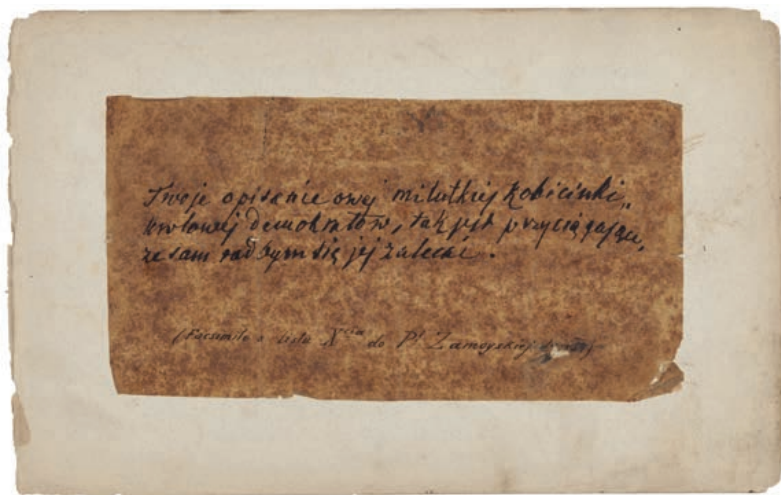 Twoje opisanie owej milutkiej kobicinki,,
królowej demokratów, tak jest przyciągające,
że sam rad bym się jej zalecić.
(Facsimile z listu X<sup>cia</sup> do P<sup>i</sup> Zamoyskiej